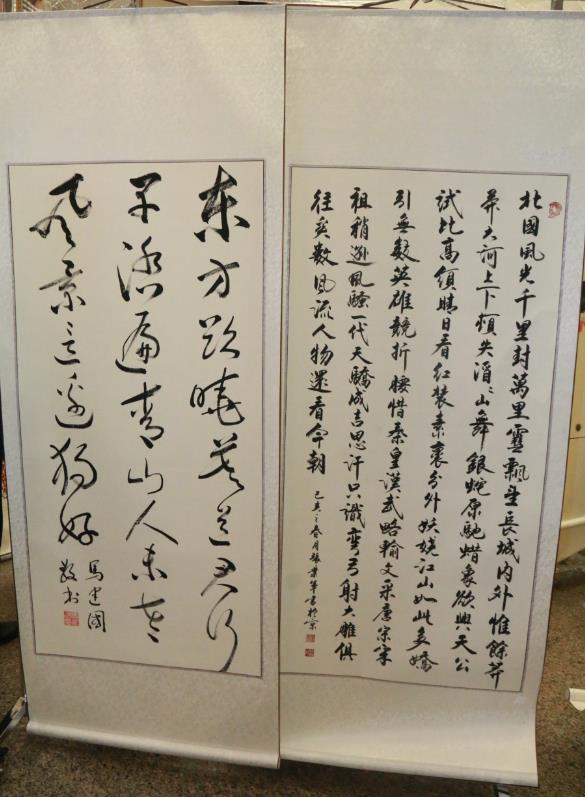 北國風光千里封萬里雪飄望長城内外惟餘莽
莽大河上下頓失滔〻山舞銀蛇原馳蜡象欲與天公
試比高須晴日看红裝素裹分外妖嬈江山如此多嬌
引無數英雄競折腰惜秦皇漢武略輸文采唐宗宋
祖稍遜風騷一代天驕成吉思汗只識彎弓射大雕俱
往矣數風流人物還看今朝
己亥之春月張業軍书於京
东方欲晓莫道君行
早踏遍青山人未老
风景这边独好
馬建國
敬书